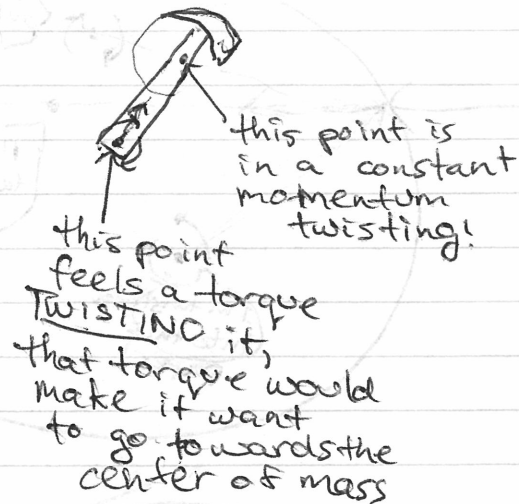 this point is
in a constant
momentum
twisting!
this point
feels a torque
TWISTING it,
that torque would
make it want
to go towards the
center of mass